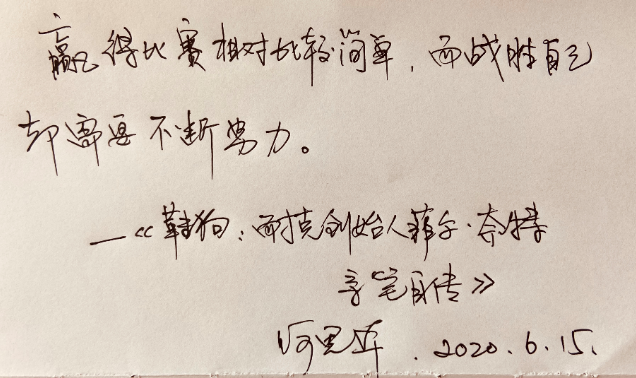 赢得比赛相对比较简单，而战胜自己
却需要不断努力。
—《鞋狗：耐克创始人菲尔·奈特
亲笔自传》
2020.6.15.